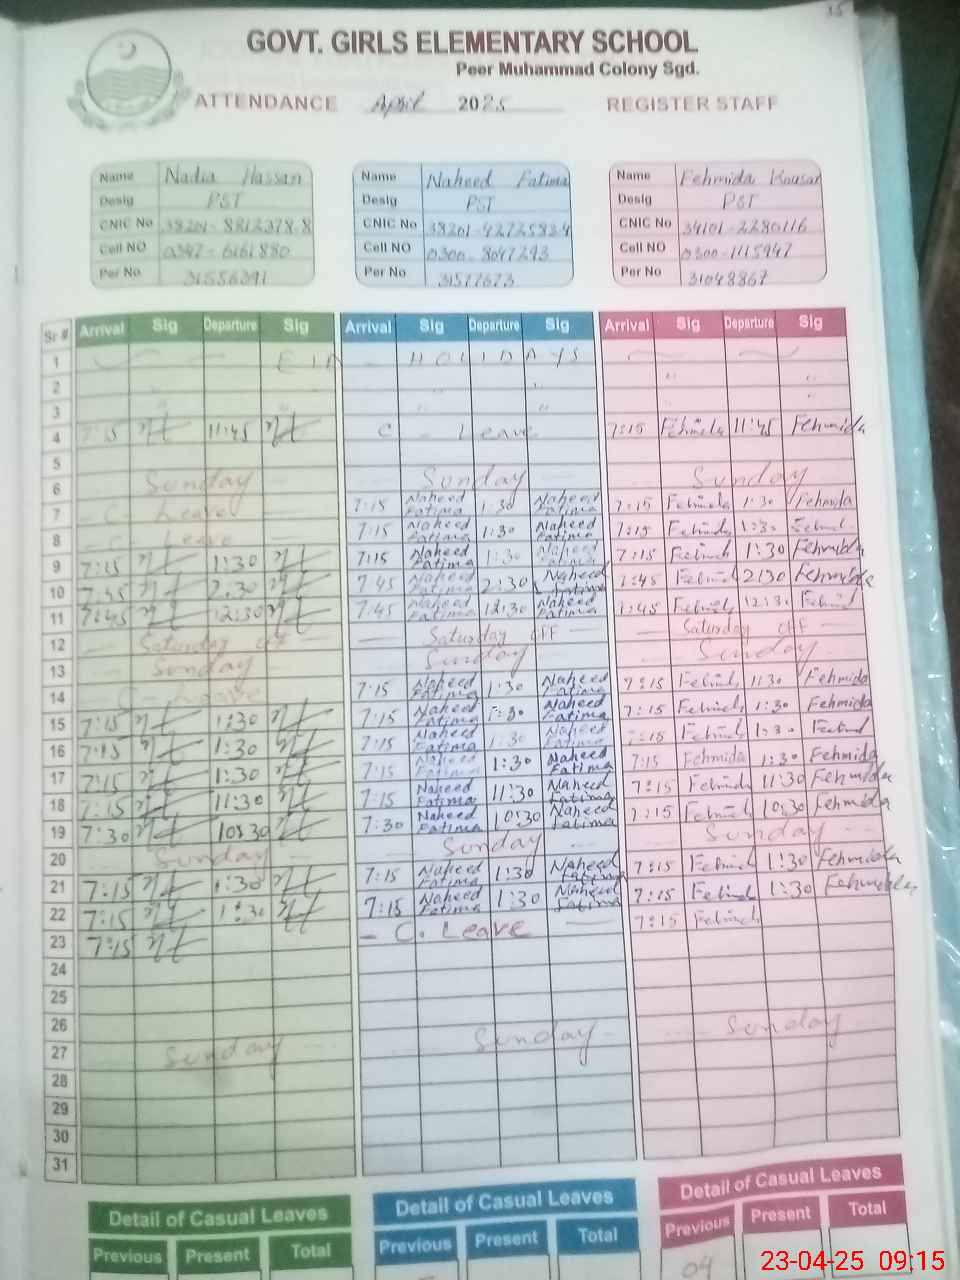 35
GOVT. GIRLS ELEMENTARY SCHOOL
Peer Muhammad Colony Sgd.
ATTENDANCE April 2025 REGISTER STAFF
Name Nadia Hassan Name Naheed Fatima Name Fehmida Kousar
Desig PST Desig PST Desig PST
CNIC No 38201-8812378-8 CNIC No 38201-4272583-4 CNIC No 34101-2280116
Cell NO 0347-6161880 Cell NO 0300-8047293 Cell NO 0300-1115947
Per No 31556391 Per No 31577673 Per No 31048867
Sr # Arrival Sig Departure Sig Arrival Sig Departure Sig Arrival Sig Departure Sig
1 EID HOLIDAYS
2 " " " "
3 " " "
4 7:15 11:45 C Leave 7:15 Fehmida 11:45 Fehmida
5
6 Sunday Sunday Sunday
7 C Leave 7:15 Naheed Fatima 1:30 Naheed Fatima 7:15 Fehmida 1:30 Fehmida
8 C Leave 7:15 Naheed Fatima 1:30 Naheed Fatima 7:15 Fehmida 1:30 Fehmid
9 7:15 1:30 7:15 Naheed Fatima 1:30 Naheed Fatima 7:15 Fehmid 1:30 Fehmida
10 7:45 2:30 7:45 Naheed Fatima 2:30 Naheed Fatima 7:45 Fehmid 2:30 Fehmida
11 7:45 12:30 7:45 Naheed Fatima 12:30 Naheed Fatima 7:45 Fehmid 12:30 Fehmid
12 Saturday off Saturday off Saturday off
13 Sunday Sunday Sunday
14 C Leave 7:15 Naheed Fatima 1:30 Naheed Fatima 7:15 Fehmid 1:30 Fehmida
15 7:15 1:30 7:15 Naheed Fatima 1:30 Naheed Fatima 7:15 Fehmid 1:30 Fehmida
16 7:15 1:30 7:15 Naheed Fatima 1:30 Naheed Fatima 7:15 Fehmid 1:30 Fehmid
17 7:15 1:30 7:15 Naheed Fatima 1:30 Naheed Fatima 7:15 Fehmida 1:30 Fehmida
18 7:15 11:30 7:15 Naheed Fatima 11:30 Naheed Fatima 7:15 Fehmid 11:30 Fehmida
19 7:30 10:30 7:30 Naheed Fatima 10:30 Naheed Fatima 7:15 Fehmid 10:30 Fehmida
20 Sunday Sunday Sunday
21 7:15 1:30 7:15 Naheed Fatima 1:30 Naheed Fatima 7:15 Fehmid 1:30 Fehmida
22 7:15 1:30 7:15 Naheed Fatima 1:30 Naheed Fatima 7:15 Fehmid 1:30 Fehmida
23 7:15 C. Leave 7:15 Fehmid
24
25
26
27 Sunday Sunday Sunday
28
29
30
31
Detail of Casual Leaves Detail of Casual Leaves Detail of Casual Leaves
Previous Present Total Previous Present Total Previous Present Total
04
23-04-25 09:15